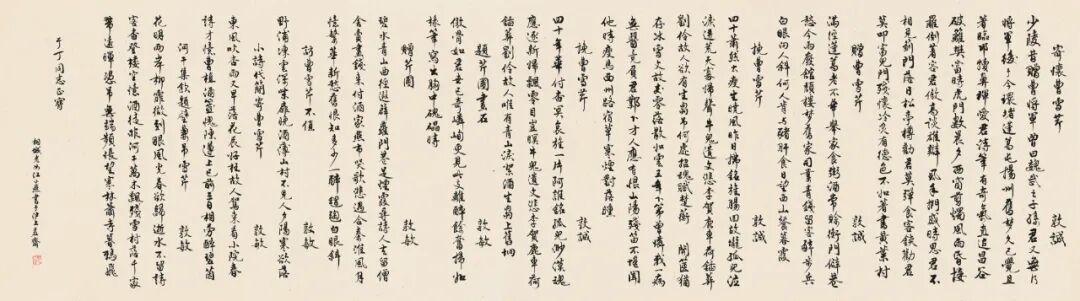 寄懷曹雪芹 敦誠
少陵昔贈曹將軍曾曰魏武之子孫君又無乃
將軍後於今環堵蓬蒿屯揚州舊夢久已覺且
著臨邛犢鼻褌愛君詩筆有奇氣直追昌谷
破籬樊當時虎門數晨夕西窗剪燭風雨昏接
䍦倒著容君傲高談雄辯虱手捫感時思君不
相見薊門落日松亭樽勸君莫彈食客鋏勸君
莫叩富兒門殘懷冷炙有德色不如著書黃葉村
贈曹雪芹 敦誠
滿徑蓬蒿老不華舉家食粥酒常賒衡門僻巷
愁今雨廢館頹樓夢舊家司業青錢留客醉步兵
白眼向人斜何人肯與豬肝食日望西山餐暮霞
挽曹雪芹 敦誠
四十蕭然太瘦生曉風昨日拂銘旌腸回故壠孤兒泣
淚迸荒天寡婦聲牛鬼遺文悲李賀鹿車荷鍤葬
劉伶故人欲有生芻吊何處招魂賦楚蘅 開篋猶
存冰雪文故交零落散如雲三年下第曾憐我一病
無醫竟負君鄴下才人應有恨山陽殘笛不堪聞
他時瘦馬西州路宿草寒煙對落曛
挽曹雪芹 敦誠
四十年華付杳冥哀旌一片阿誰銘孤兒渺漠魂
應逐新婦飄零目豈瞑牛鬼遺文悲李賀鹿車荷
鍤葬劉伶故人唯有青山淚絮酒生芻上舊坰
題芹圃畫石 敦敏
傲骨如君世已奇嶙峋更見此支離醉餘奮掃如
椽筆寫出胸中磈礧時
贈芹圃 敦敏
碧水青山曲徑遐薜蘿門巷足煙霞尋詩人去留僧
舍賣畫錢來付酒家燕市哭歌悲遇合秦淮風月
憶繁華新愁舊恨知多少一醉毷氉白眼斜
訪曹雪芹不值 敦敏
野浦凍雲深柴扉晚煙薄山村不見人夕陽寒欲落
小詩代簡寄曹雪芹 敦敏
東風吹杏雨又早落花辰好枉故人駕來看小院春
詩才憶曹植酒盞愧陳遵上巳前三日相勞醉碧茵
河干集飲題壁兼吊雪芹 敦敏
花明兩岸柳霏微到眼風光春欲歸逝水不留詩
客杳登樓空憶酒徒非河干萬木飄殘雪村落千家
帶遠暉憑吊無端頻悵望寒林蕭寺暮鴉飛
于丁同志正寶
桐城